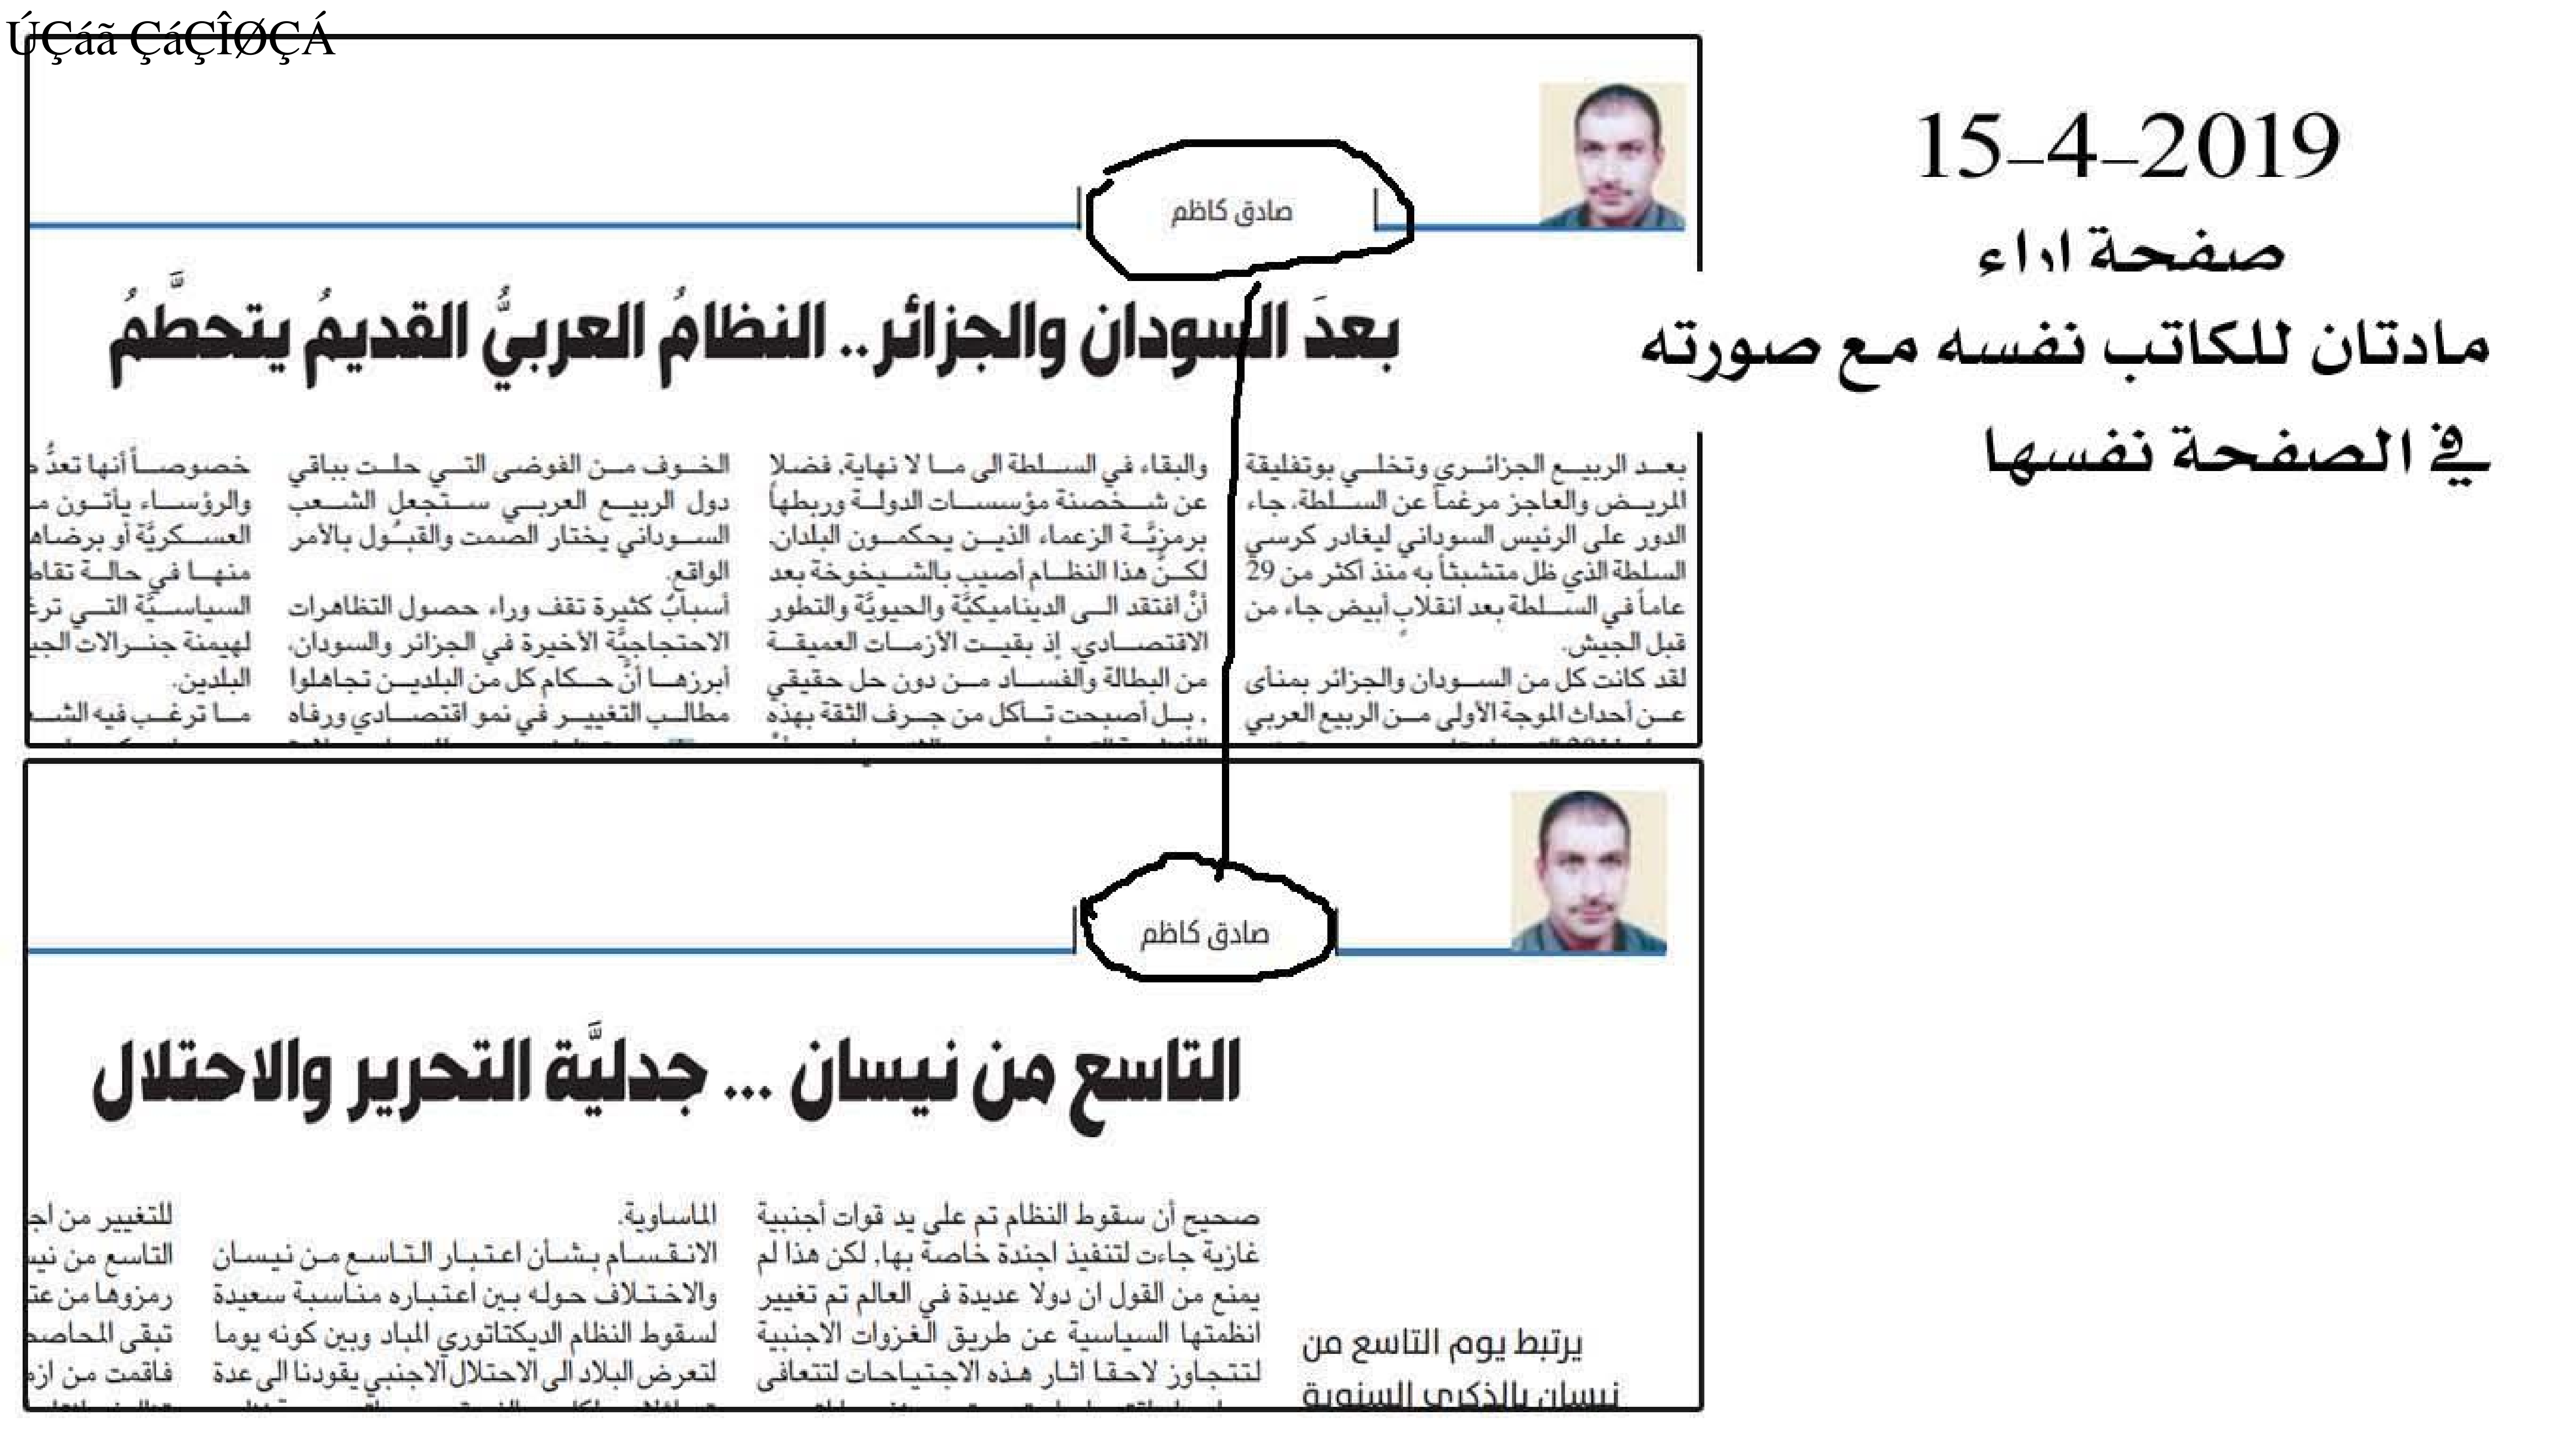 ÚÇáã ÇáÇÎØÇÁ
15-4-2019
صفحة اراء
مادتان للكاتب نفسه مع صورته
في الصفحة نفسها
صادق كاظم
بعدَ السودان والجزائر.. النظامُ العربيُّ القديمُ يتحطَّمُ
بعد الربيع الجزائري وتخلي بوتفليقة
المريض والعاجز مرغماً عن السلطة، جاء
الدور على الرئيس السوداني ليغادر كرسي
السلطة الذي ظل متشبثاً به منذ أكثر من 29
عاماً في السلطة بعد انقلابٍ أبيض جاء من
قبل الجيش.
لقد كانت كل من السودان والجزائر بمنأى
عن أحداث الموجة الأولى من الربيع العربي
والبقاء في السلطة الى ما لا نهاية، فضلاً
عن شخصنة مؤسسات الدولة وربطها
برمزيَّة الزعماء الذين يحكمون البلدان.
لكنَّ هذا النظام أصيب بالشيخوخة بعد
أنْ افتقد الى الديناميكيَّة والحيويَّة والتطور
الاقتصادي، إذ بقيت الأزمات العميقة
من البطالة والفساد من دون حل حقيقي
، بل أصبحت تتآكل من جرف الثقة بهذه
الخوف من الفوضى التي حلت بباقي
دول الربيع العربي ستجعل الشعب
السوداني يختار الصمت والقبُول بالأمر
الواقع.
أسبابٌ كثيرة تقف وراء حصول التظاهرات
الاحتجاجيَّة الأخيرة في الجزائر والسودان،
أبرزها أنَّ حكام كل من البلدين تجاهلوا
مطالب التغيير في نمو اقتصادي ورفاه
خصوصاً أنها تعدُّ
والرؤساء يأتون
العسكريَّة أو
منها في حالة
السياسيَّة التي
لهيمنة جنرالات
البلدين.
ما ترغب فيه
صادق كاظم
التاسع من نيسان ... جدليَّة التحرير والاحتلال
يرتبط يوم التاسع من
نيسان بالذكرى السنوية
صحيح أن سقوط النظام تم على يد قوات أجنبية
غازية جاءت لتنفيذ اجندة خاصة بها، لكن هذا لم
يمنع من القول ان دولا عديدة في العالم تم تغيير
انظمتها السياسية عن طريق الغزوات الاجنبية
لتتجاوز لاحقا اثار هذه الاجتياحات لتتعافى
الماساوية.
الانقسام بشأن اعتبار التاسع من نيسان
والاختلاف حوله بين اعتباره مناسبة سعيدة
لسقوط النظام الديكتاتوري المباد وبين كونه يوما
لتعرض البلاد الى الاحتلال الاجنبي يقودنا الى عدة
للتغيير من
التاسع من
رمزوها من
تبقى
فاقمت من